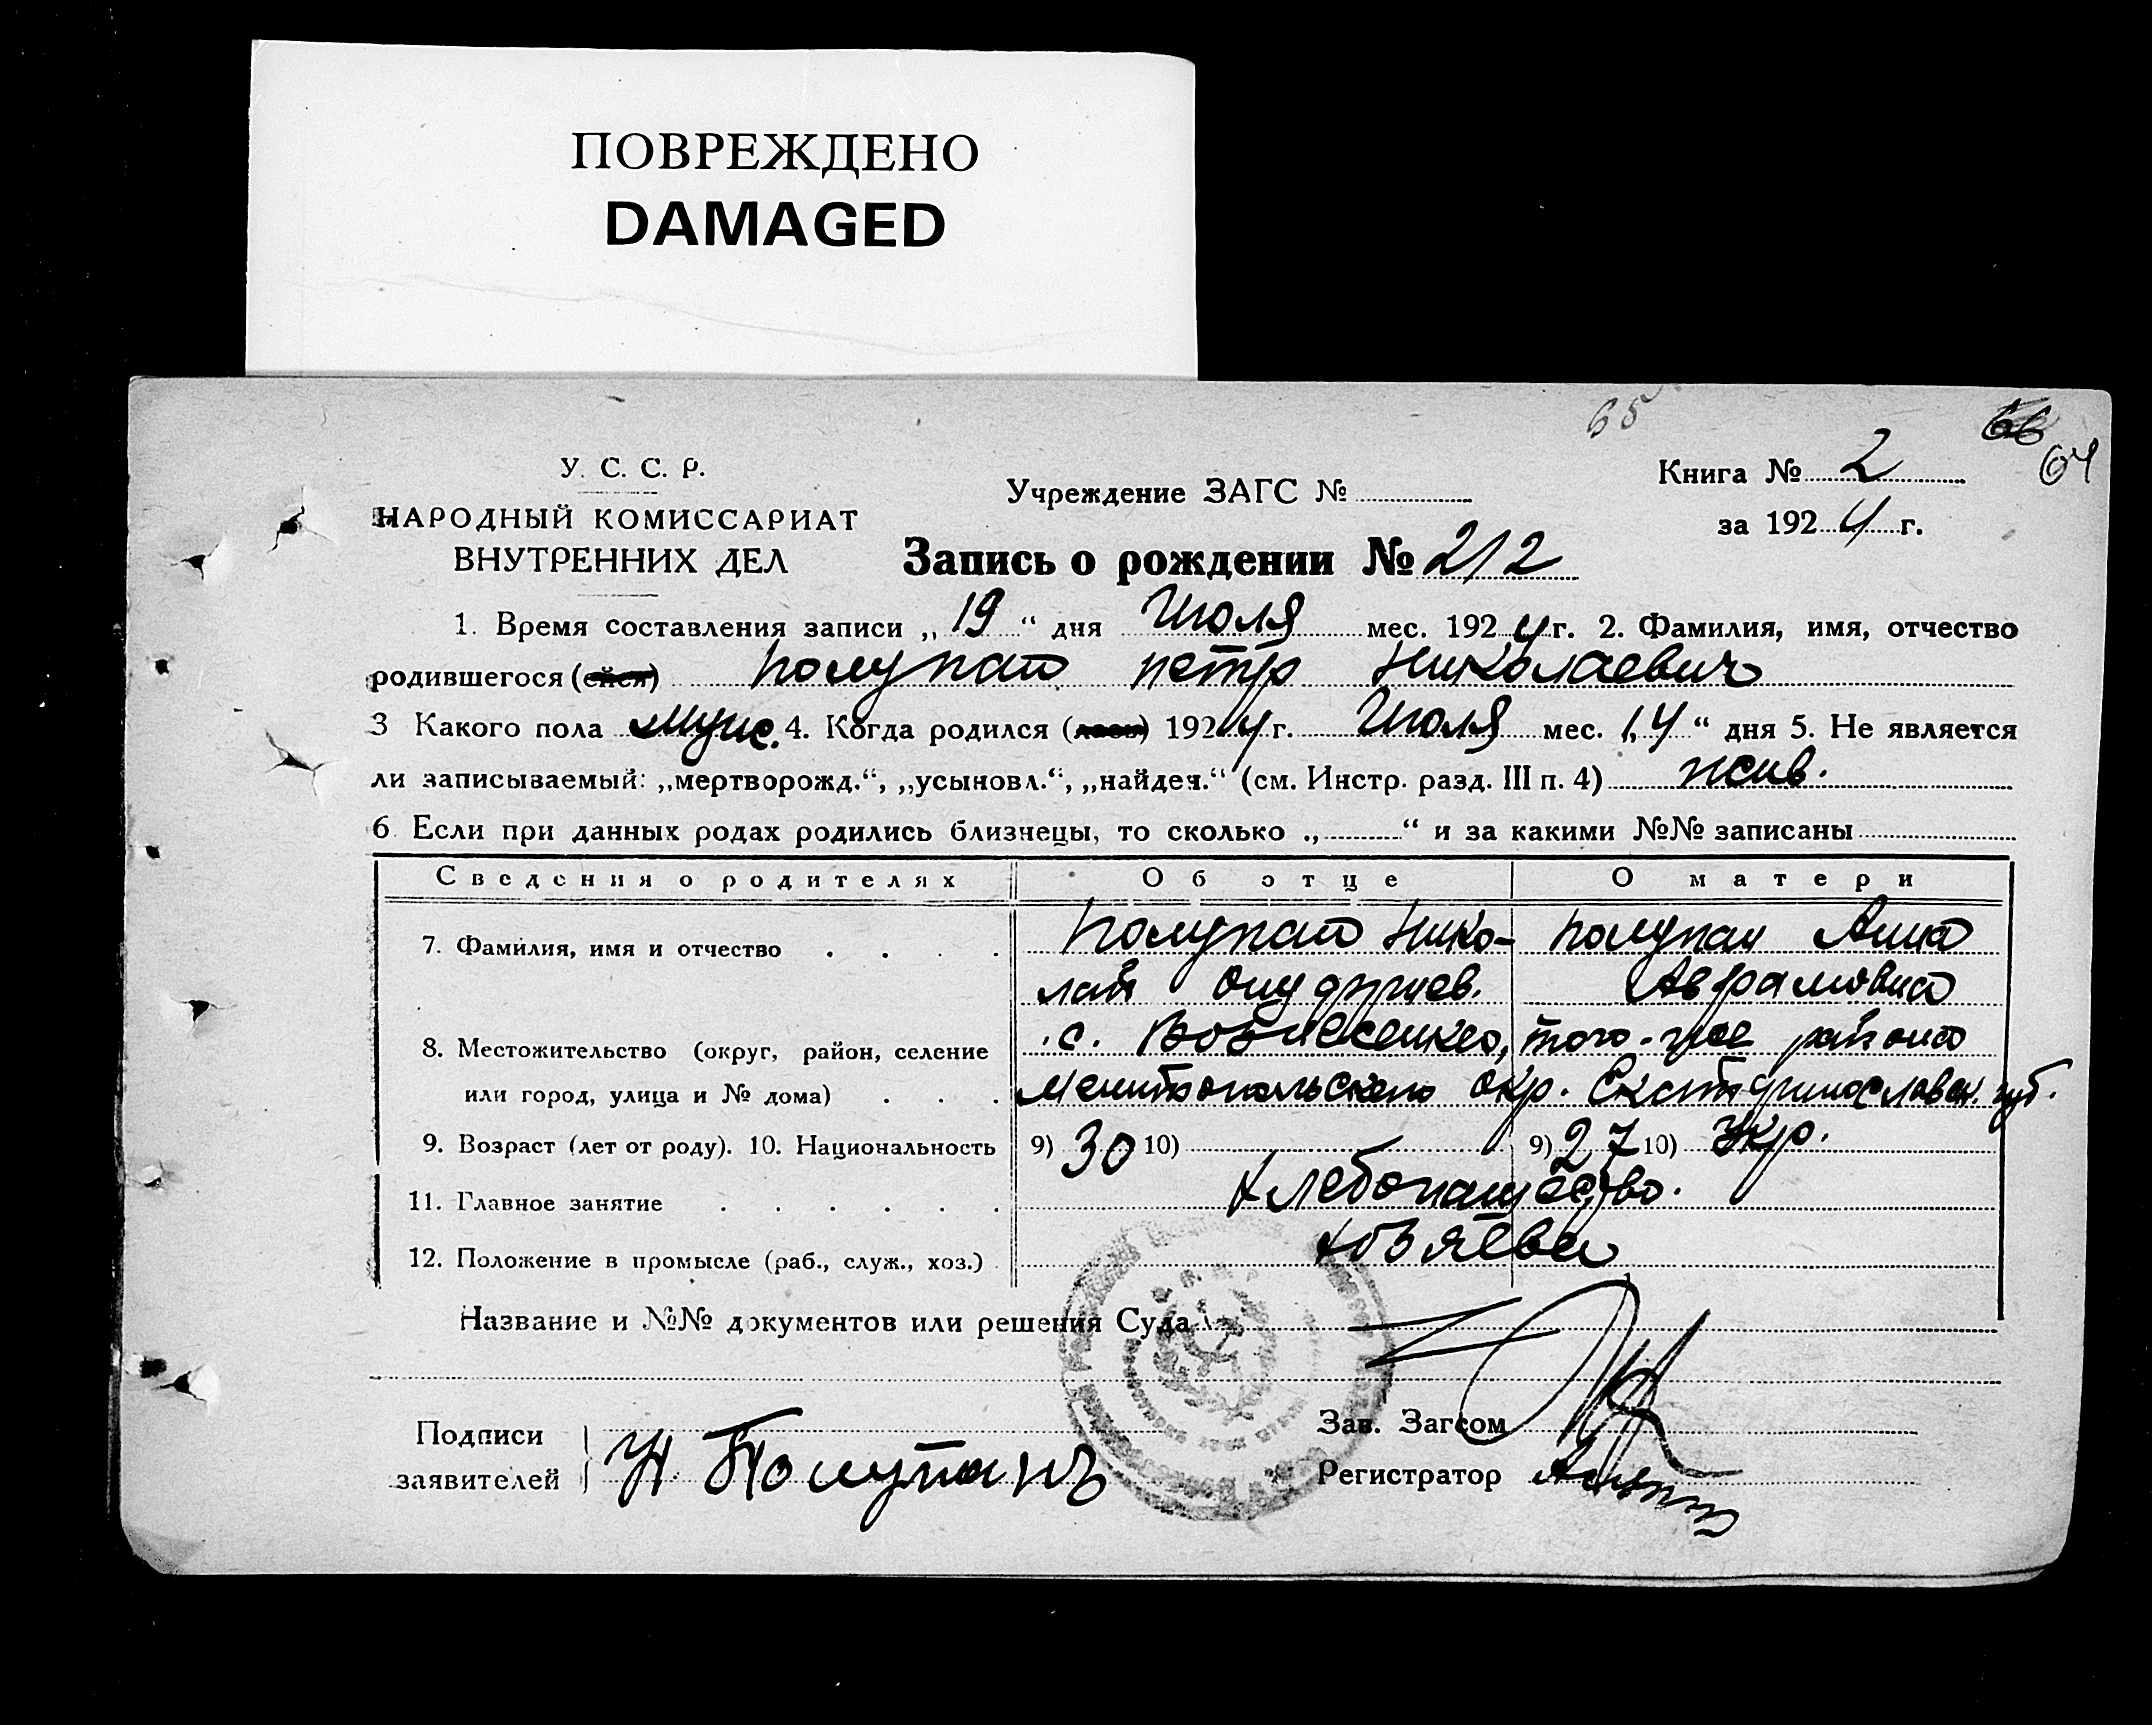 ПОВРЕЖДЕНО
DAMAGED
65
66
64
У. С. С. Р.
НАРОДНЫЙ КОМИССАРИАТ
ВНУТРЕННИХ ДЕЛ
Учреждение ЗАГС №
Книга № 2
за 1924 г.
Запись о рождении № 212
1. Время составления записи „19“ дня Июля мес. 1924 г. 2. Фамилия, имя, отчество
родившегося (ейся) Полупан Петр Николаевич
3 Какого пола муж. 4. Когда родился (лась) 1924 г. Июля мес. 14 “ дня 5. Не является
ли записываемый: „мертворожд.“, „усыновл.“, „найден.“ (см. Инстр. разд. III п. 4) жив.
6 Если при данных родах родились близнецы, то сколько „ “ и за какими №№ записаны
Сведения о родителях Об отце О матери
7. Фамилия, имя и отчество Полупан Нико- Полупан Анна
лай Аврамовна
8. Местожительство (округ, район, селение с. Вознесенка, того-же района
или город, улица и № дома) Мелитопольского окр. Екатеринославск. губ.
9. Возраст (лет от роду). 10. Национальность 9) 30 10) 9) 27 10) Укр.
11. Главное занятие Хлебопашество.
12. Положение в промысле (раб., служ., хоз.) Хозяева
Название и №№ документов или решения Суда
Подписи
заявителей Н Полупанъ
Зав. Загсом
Регистратор